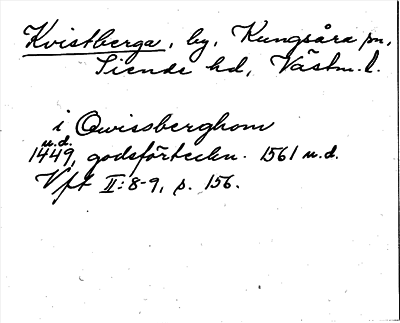 Kvistberga, by, Kungsåra sn,
Siende hd, Västm. l.
i Qwissberghom
u.d.
1449, godsförteckn. 1561 u.d.
Vft II:8-9, s. 156.